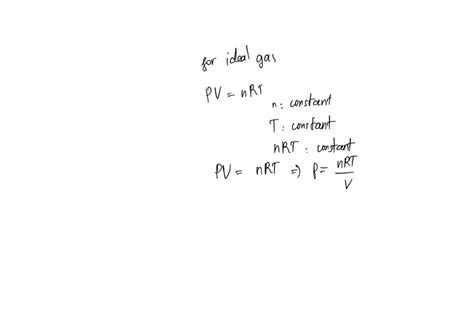 for ideal gas
PV = nRT
n : constant
T : constant
nRT : constant
PV = nRT ⇒ P = nRT/V